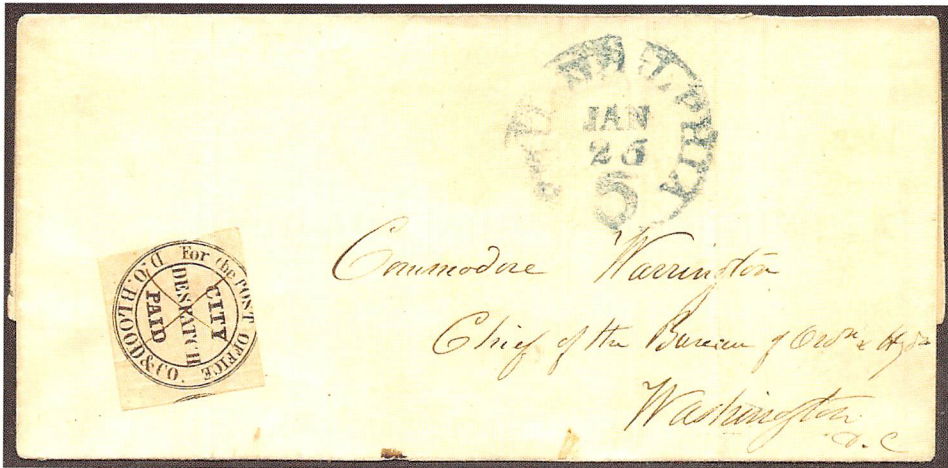 PHILADELPHIA
JAN
26
5
For the POST OFFICE
D.O. BLOOD & CO.
CITY
DESPATCH
PAID
Commodore Warrington
Chief of the Bureau of Ord. & Hyd.
Washington
D.C